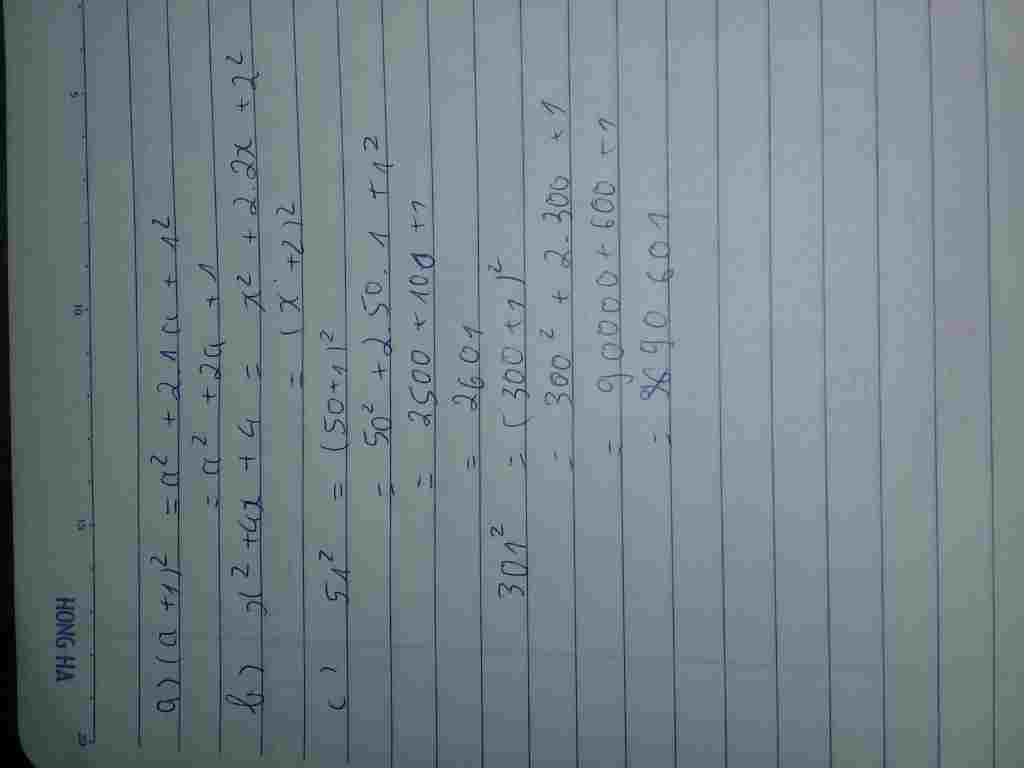 HONG HA
5
10
15
20
a) (a + 1)² = a² + 2.1.a + 1²
= a² + 2a + 1
b) x² + 4x + 4 = x² + 2.2x + 2²
= (x + 2)²
c) 51² = (50+1)²
= 50² + 2.50.1 + 1²
= 2500 + 100 + 1
= 2601
301² = (300+1)²
= 300² + 2.300 + 1
= 90000 + 600 + 1
= 90 601